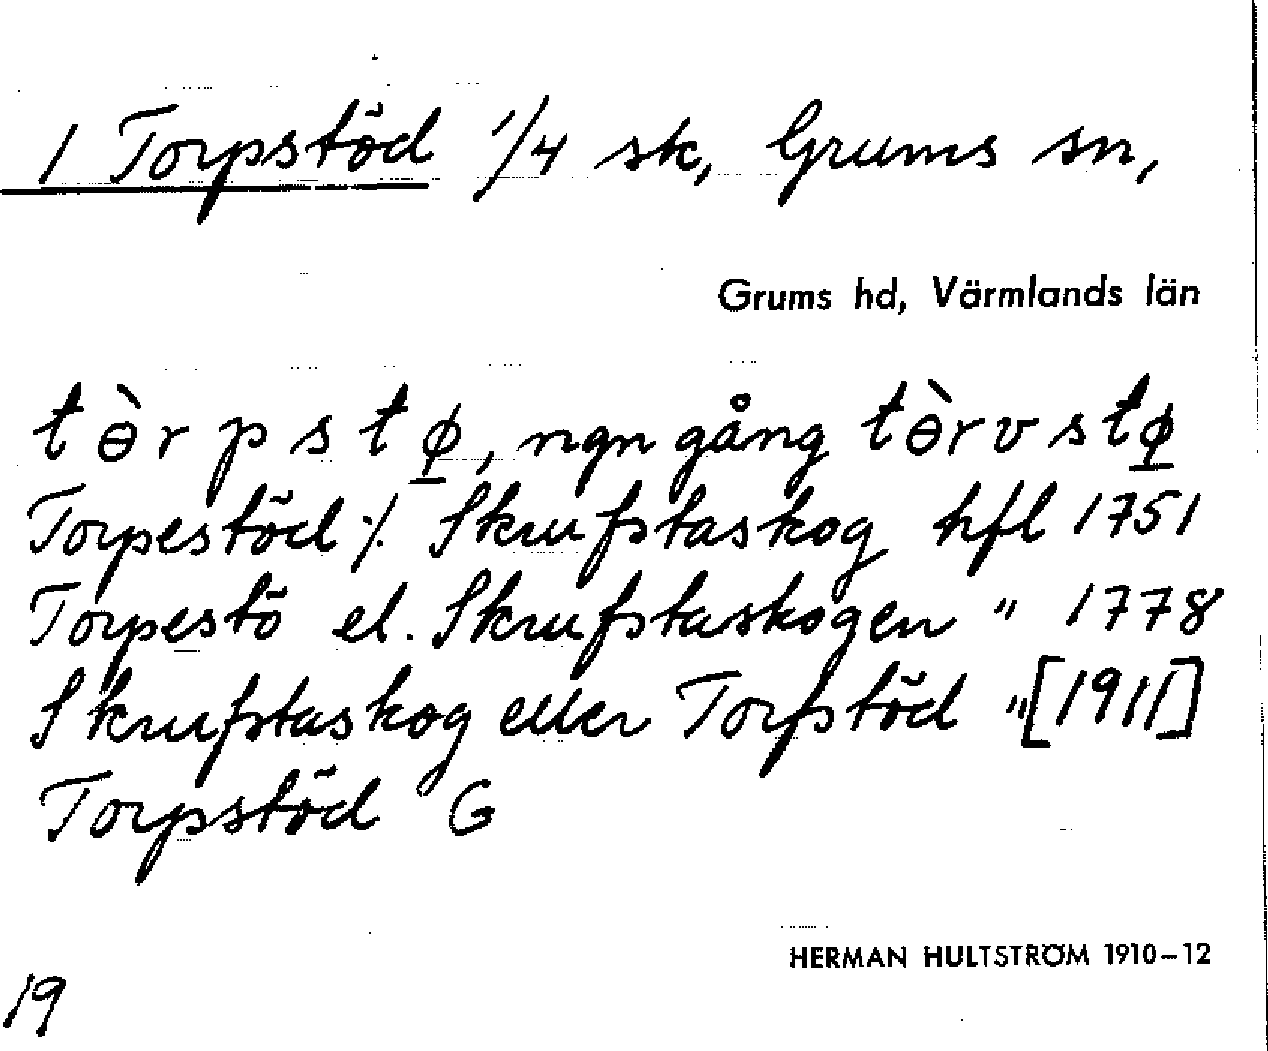 1 Torpstöd 1/4 sk, Grums sn,
Grums hd, Värmlands län
tɵ̀rpstø̱, ngn gång tɵ̀rvstø̱
Torpestöd ·/. Skrufstaskog hfl 1751
Torpestö el. Skrufstaskogen " 1778
Skrufstaskog eller Torpstöd " [1911]
Torpstöd G
HERMAN HULTSTRÖM 1910-12
19